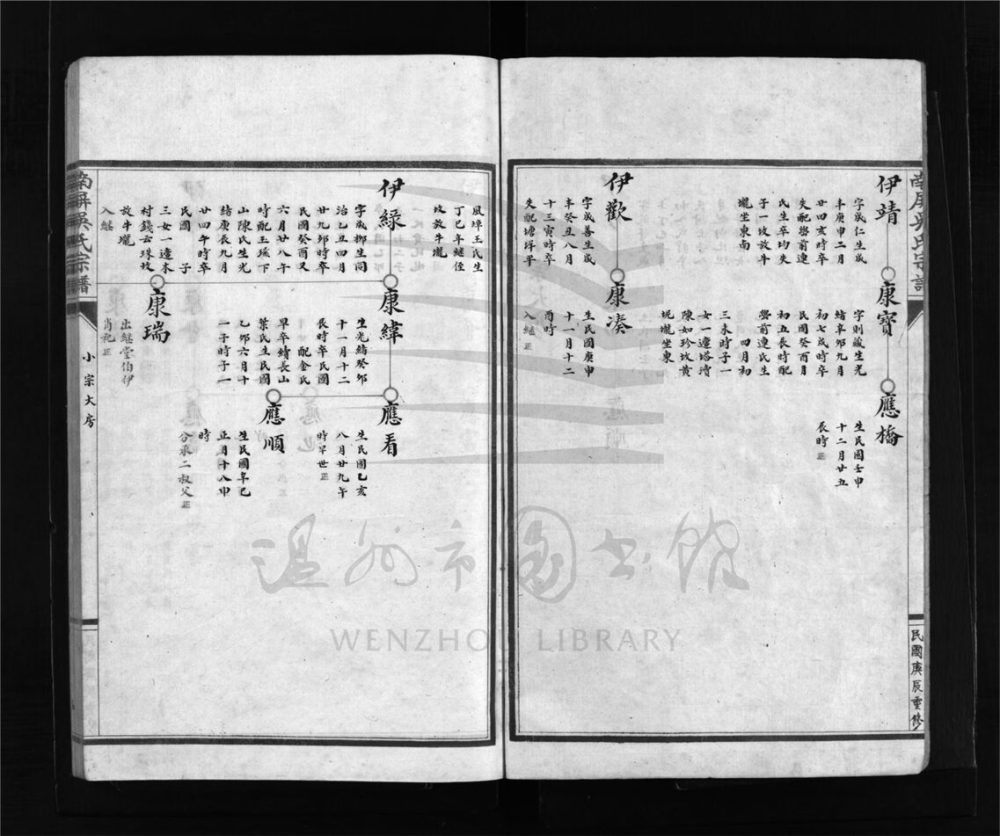 南屏吳氏宗譜
民國庚辰重修
伊靖
字成仁生咸
豐庚申二月
廿四亥時卒
失配嶴前連
民生卒均失
子一坟敖牛
壠坐東南
康寶
字則藏生光
緒辛卯九月
初七戌時卒
民國癸酉月
初五辰時配
嶴前連氏生
四月初
三未時子一
女一適塔垟
陳如珍坟黄
坭壠坐東
應橋
生民國壬申
十二月廿五
辰時正
伊歡
字成善生咸
辛癸丑八月
十三寅時卒
失配塘垟平
康湊
生民國庚申
十一月十二
酉時
入繼正
鳳埠王氏生
丁巳年繼侄
坟敖牛壠
伊緑
字成柳生同
治乙丑四月
廿九卯時卒
民國癸酉又
六月廿八午
時配玉溪下
山陳氏生光
緒庚辰九月
廿四午時卒
民國 子
三女一適木
村錢云珠坟
敖牛壠
入繼
康緯
生光緒癸卯
十一月十二
辰時卒民國
配金氏
早卒續長山
葉氏生民國
乙卯六月十
一子時子一
應看
生民國乙亥
八月廿九午
時早世正
應順
生民國辛巳
正月十八申
時
分承二叔父正
康瑞
出繼堂伯伊
肖祀正
南屏吳氏宗譜
小宗大房
温州市图书馆
WENZHOU LIBRARY